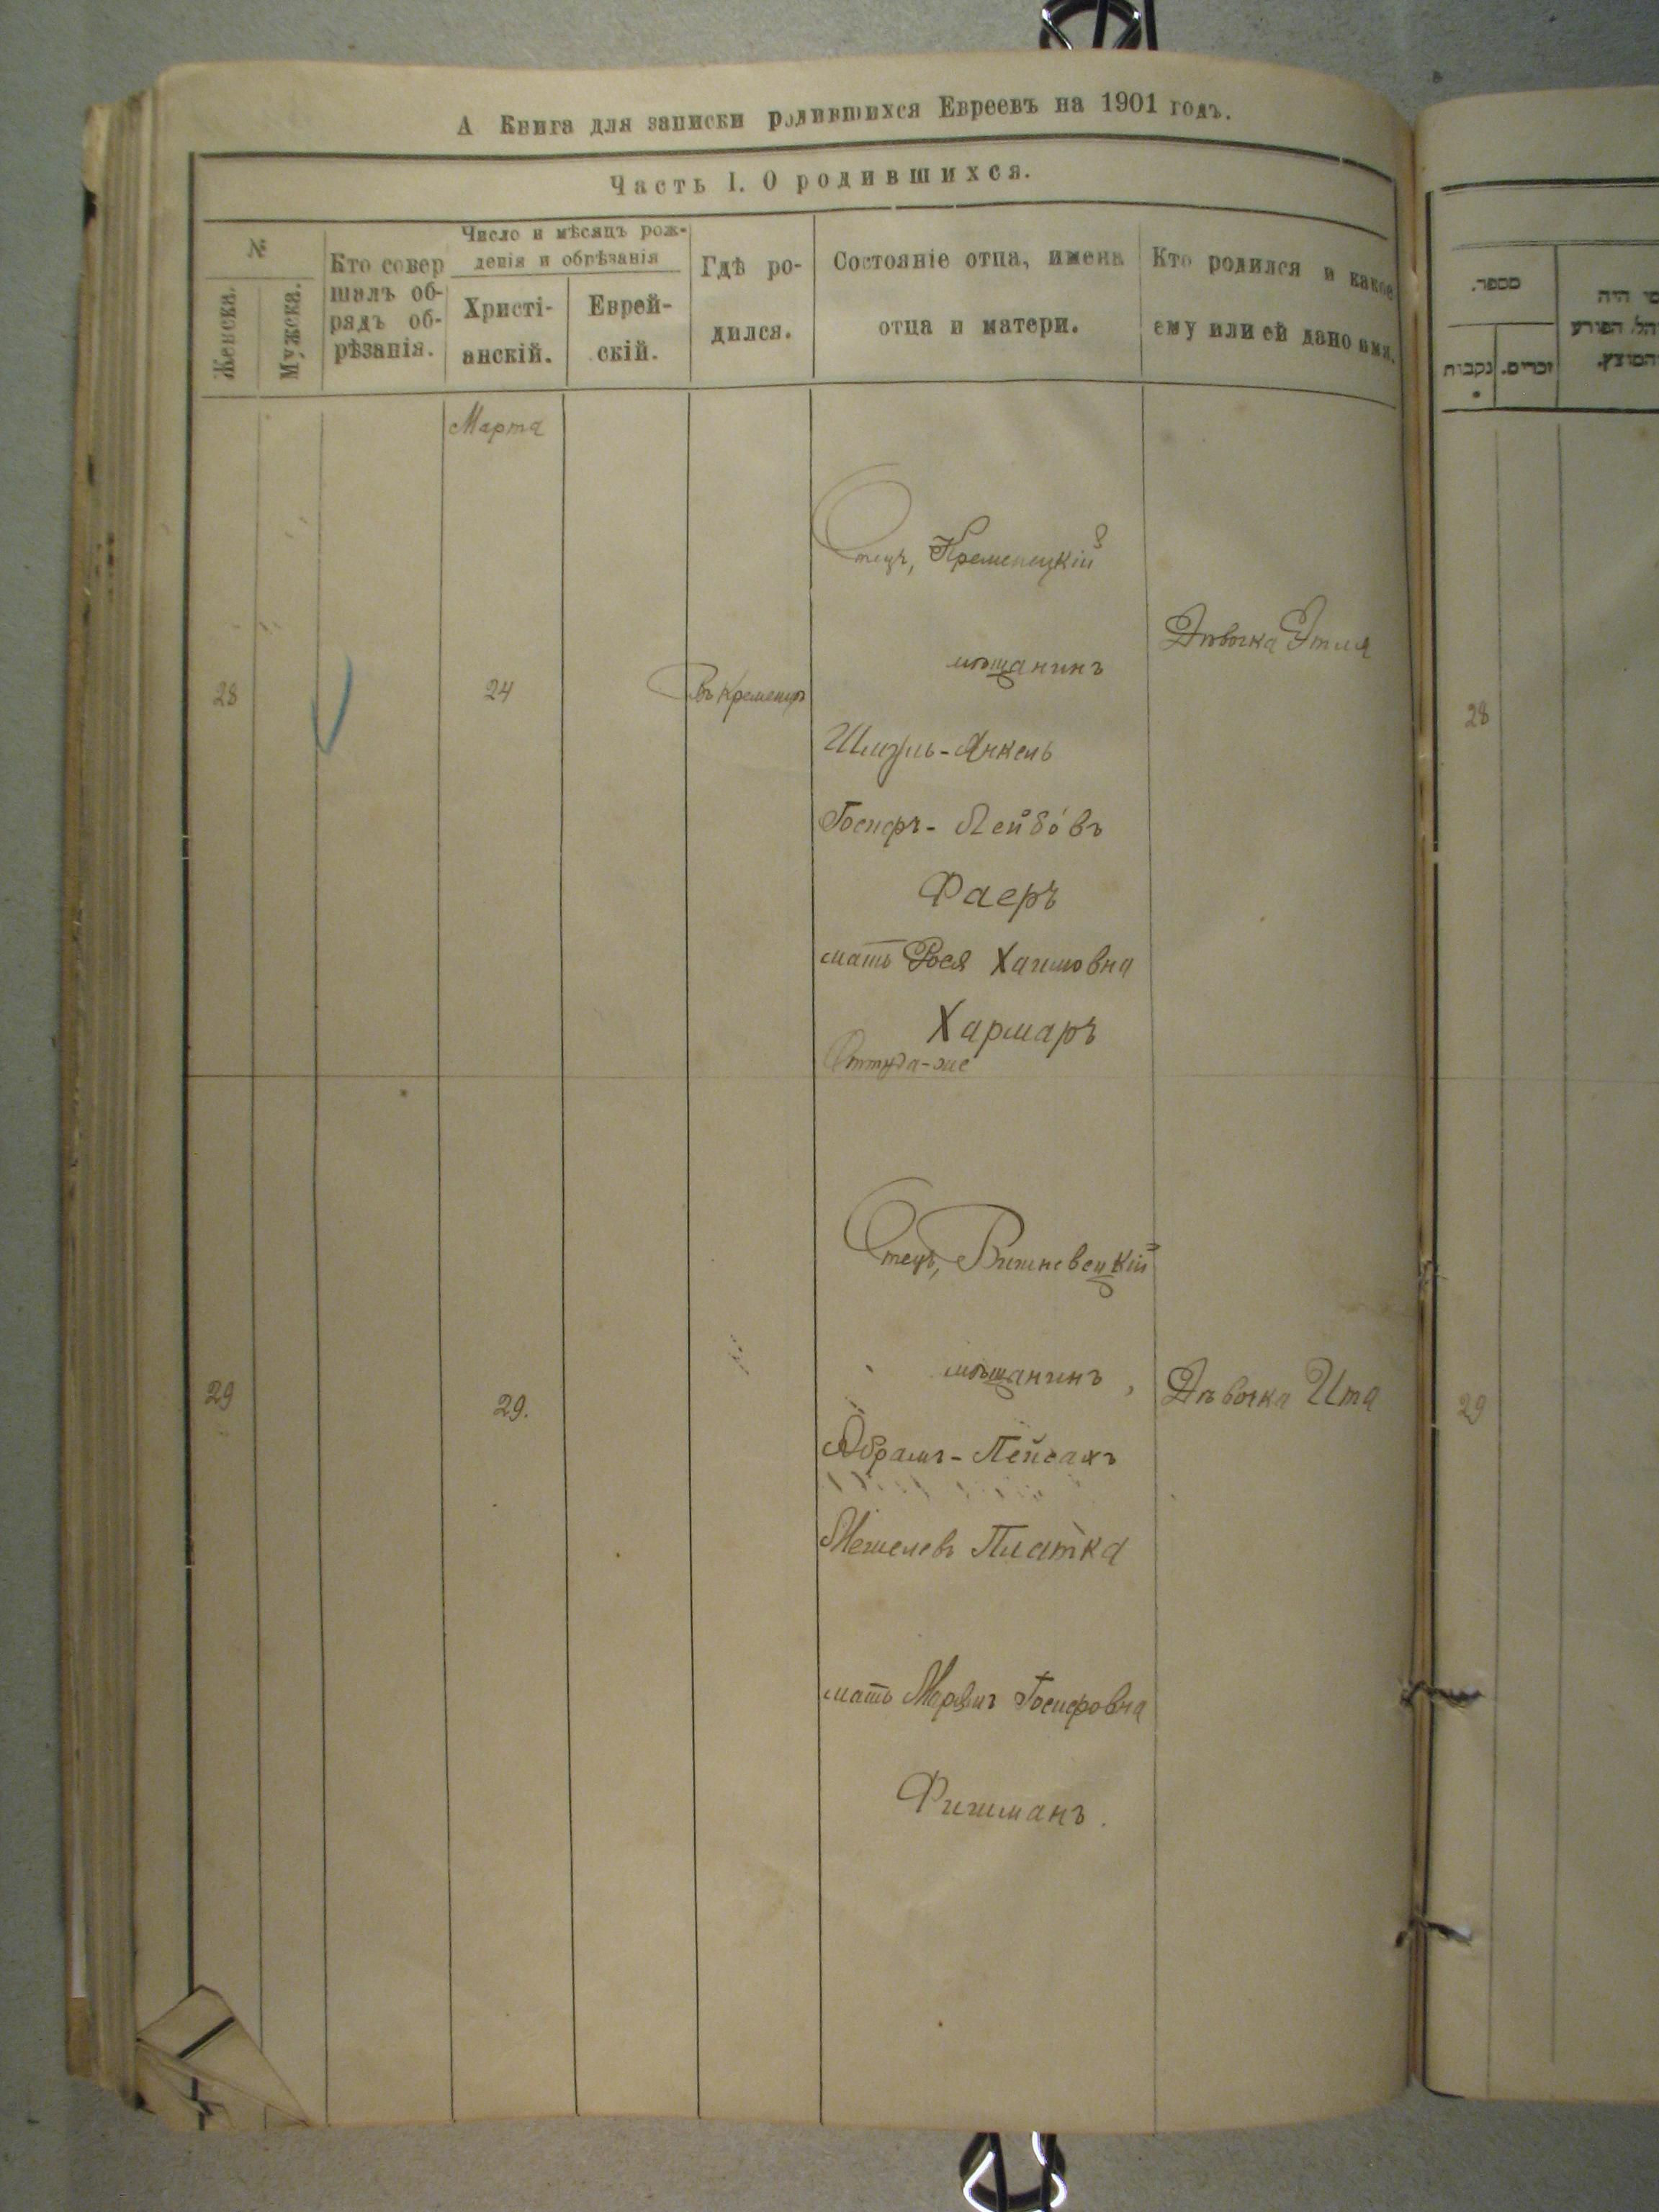 А Книга для записки родившихся Евреевъ на 1901 годъ.
Часть I. О родившихся.
№
Женска.
Мужска.
Кто совер
шалъ об-
рядъ об-
рѣзанія.
Число и мѣсяцъ рож-
денія и обрѣзанія
Христі-
анскій.
Еврей-
скій.
Гдѣ ро-
дился.
Состояніе отца, имена
отца и матери.
Кто родился и какое
ему или ей дано имя.
Марта
28
24
Въ Кременцѣ
Отецъ, Кременецкій
мѣщанинъ
Шмуль-Янкель
Іосифъ-Лейбовъ
Фаеръ
мать Рося Хаимовна
Хармаръ
Оттуда-же
Дѣвочка Этля
29
29.
Отецъ, Вишневецкій
мѣщанинъ,
Абрамъ-Пейсахъ
Мешелевъ Платка
мать Іосифовна
Фишманъ.
Дѣвочка Ита
מספר.
נקבות
זכרים.
מי היה
המוהל הפורע
והמוצץ.
28
29